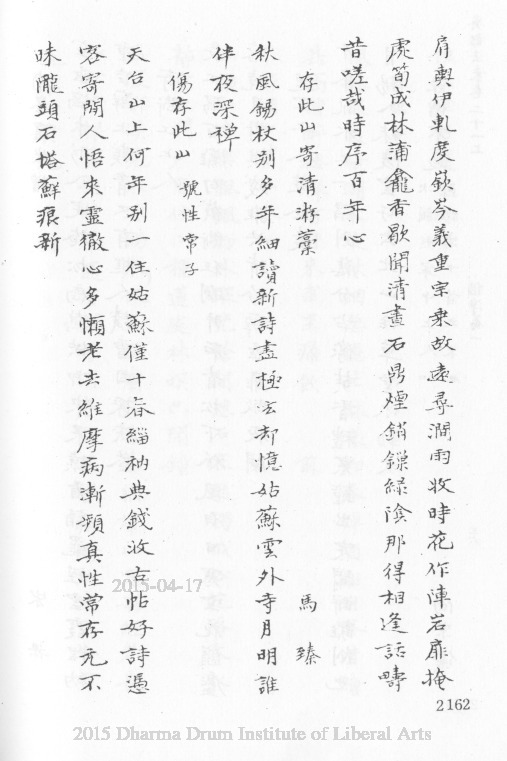 肩輿伊軋度嶔岑義重宗乘故遠尋澗雨收時花作陣岩扉掩
處筍成林蒲龕香歇聞清晝石鼎煙銷鏁綠陰那得相逢話疇
昔嗟哉時序百年心
存此山寄清游藁　馬臻
秋風錫杖別多年細讀新詩盡極玄却憶姑蘇雲外寺月明誰
伴夜深禪
傷存此山　號性常子
天台山上何年別一住姑蘇僅十春緇衲典錢收古帖好詩憑
客寄閒人悟來靈徹心多懶老去維摩病漸頻真性常存元不
昧隴頭石塔蘚痕新
2162
2015-04-17
2015 Dharma Drum Institute of Liberal Arts